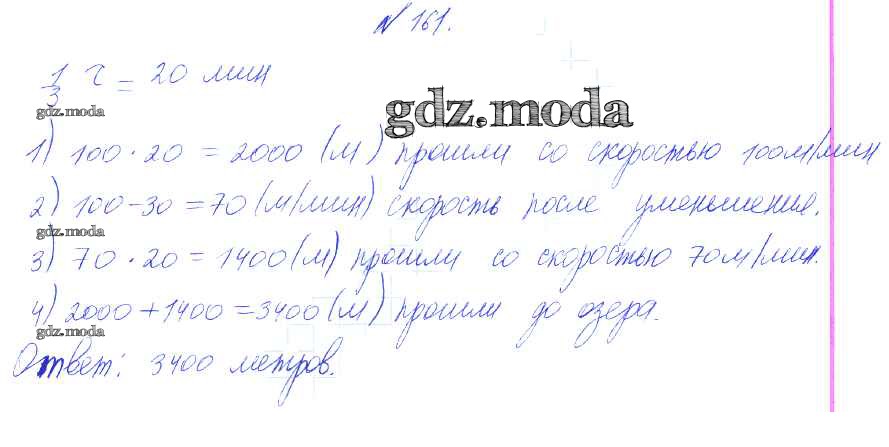 № 161.
1/3 ч = 20 мин
gdz.moda
gdz.moda
1) 100 · 20 = 2000 (м) прошли со скоростью 100м/мин
2) 100 - 30 = 70 (м/мин) скорость после уменьшение.
gdz.moda
3) 70 · 20 = 1400 (м) прошли со скоростью 70м/мин.
4) 2000 + 1400 = 3400 (м) прошли до озера.
gdz.moda
Ответ: 3400 метров.